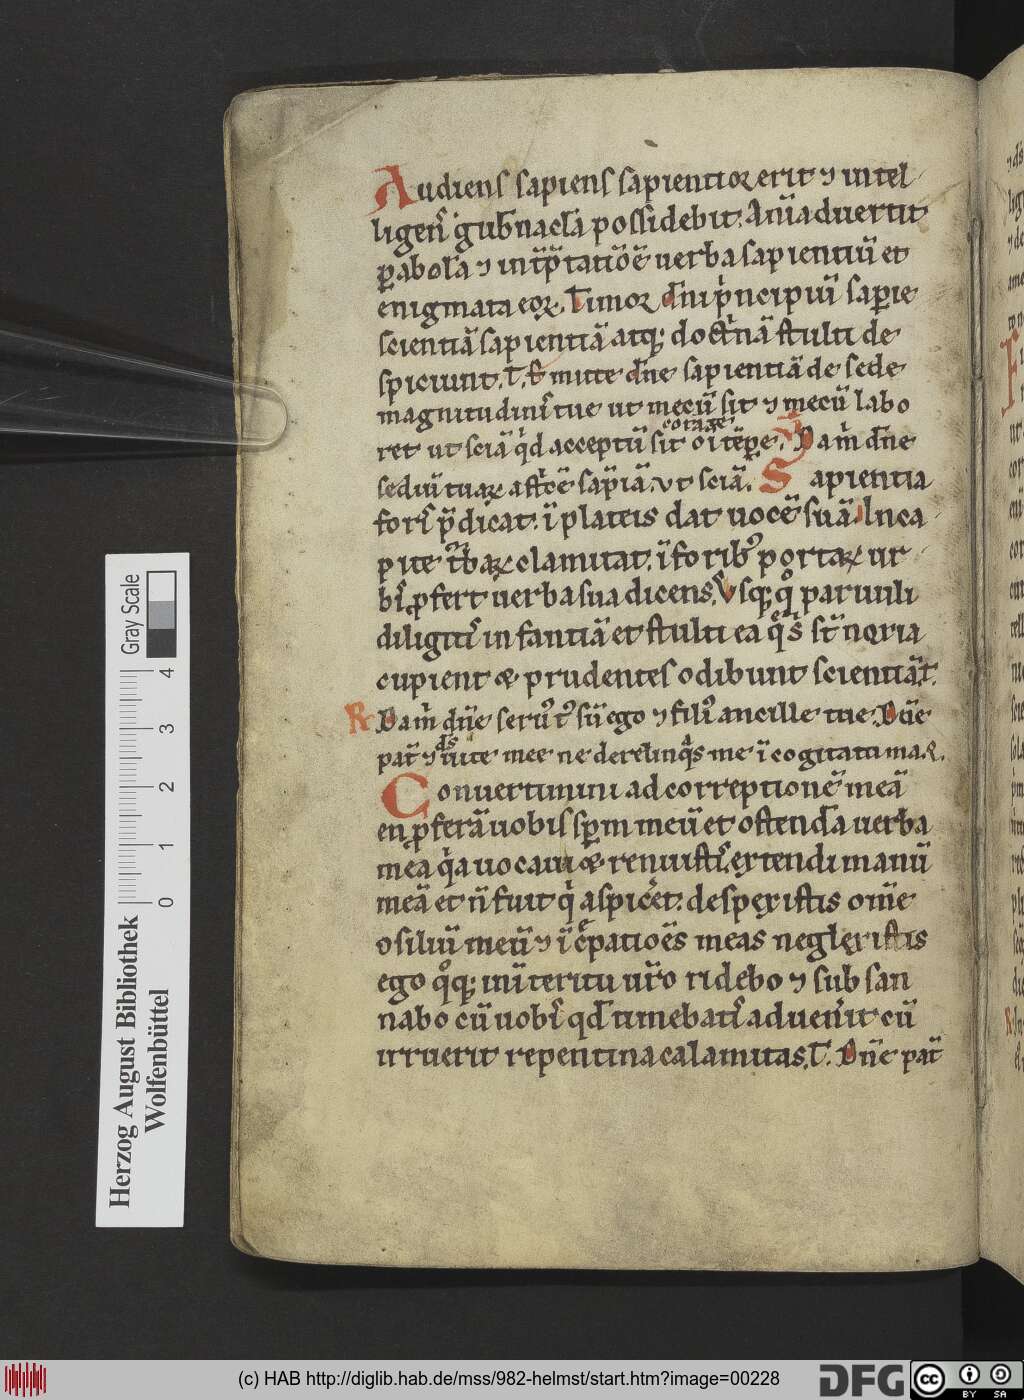 Audiens sapiens sapientior erit ⁊ intel
ligens̄ gub̄nacl̄a possidebit. Anīaduertit
ꝑabolā ⁊ int̄p̄tatiōē uerba sapientiū et
enigmata eoꝝ. Timor dn̄i pͥncipiū sapīe
scientiā sapientiā atq; doctͥnā stulti de
spiciunt. T. Emitte dn̄e sapientiā de sede
magnitudinis̄ tue ut mecū sit ⁊ mecū labo
ret ut sciā qͥd acceptū sit corā te oī tēpꝛe. Da m̄ dn̄e
sediū tuaꝝ astͥcē sap̄iā. ut sciā. Sapientia
forīs p̄dicat. ī plateis dat uocē suā. In ca
pite t̄baꝝ clamitat. ī foribꝰ portaꝝ ur
bīs ꝓfert uerba sua dicens. Usq; qͦ paruuli
diligitīs infantiā et stulti ea q̄ sͥ st̄ noxia
cupient ⁊ prudentes odibunt scientiā. T.
R Da m̄ dn̄e seruꝰ tꝰ sū ego ⁊ filiꝰ ancille tue. Dn̄e
pat̄ ⁊ ds̄ uite mee ne derelinqͣs me ī cogitatu ma. R.
Conuertimini ad correptionē meā
en ꝓferā uobis sp̄m meū et ostendā uerba
mea qͥa uocaui ⁊ renuistīs. extendi manū
meā et n̄ fuit qͥ aspicēt. despexistis om̄e
ɔsiliū meū ⁊ īcͤpatioēs meas neglexistis
ego qͦq; in īteritu ur̄o ridebo ⁊ subsan
nabo cū uobīs qd̄ timebatīs aduen̄it cū
irruerit repentina calamitas. T. Dn̄e pat̄
Herzog August Bibliothek
Wolfenbüttel
0 1 2 3 4
Gray Scale
(c) HAB http://diglib.hab.de/mss/982-helmst/start.htm?image=00228
DFG
cc
BY SA